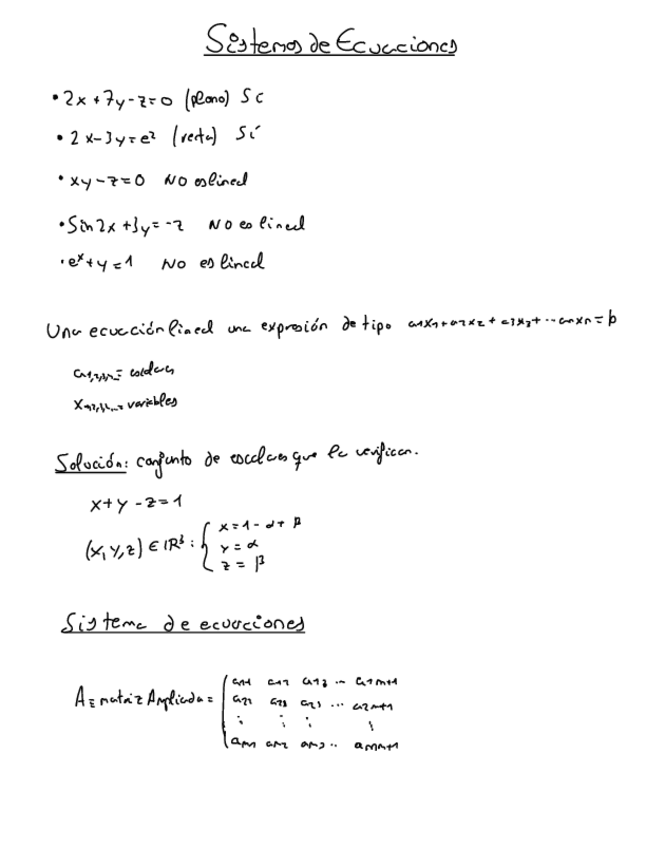 Sistemas de Ecuaciones
• 2x + 7y - z = 0 (plano) Sí
• 2x - 3y = e² (recta) Sí
• xy - z = 0 NO es lineal
• Sin 2x + 3y = -z NO es lineal
• eˣ + y = 1 NO es lineal
Una ecuación lineal una expresión de tipo a₁x₁ + a₂x₂ + a₃x₃ + ... aₙxₙ = b
a₁,₂,₃,ₙ = escalares
x₁,₂,₃,ₙ = variables
Solución: conjunto de escalares que la verifican.
x + y - z = 1
(x, y, z) ∈ IR³ : { x = 1 - α + β
y = α
z = β
Sistema de ecuaciones
A ≡ matriz Ampliada = ( a₁₁ a₁₂ a₁₃ ... a₁ₙ₊₁
a₂₁ a₂₂ a₂₃ ... a₂ₙ₊₁
⋮ ⋮ ⋮ ⋮
aₘ₁ aₘ₂ aₘ₃ .. aₘₙ₊₁